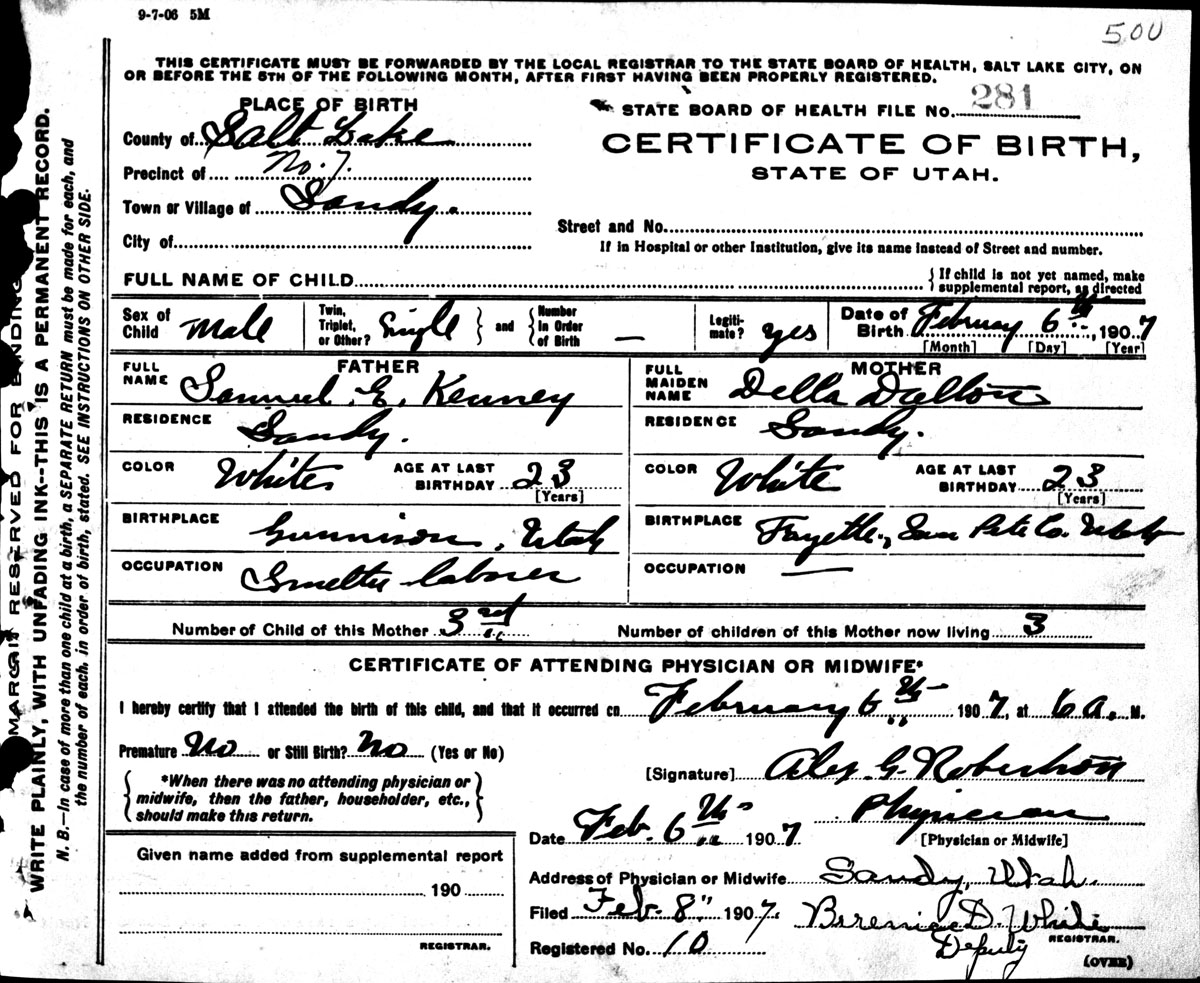 9-7-06 5M
500
THIS CERTIFICATE MUST BE FORWARDED BY THE LOCAL REGISTRAR TO THE STATE BOARD OF HEALTH, SALT LAKE CITY, ON
OR BEFORE THE 5TH OF THE FOLLOWING MONTH, AFTER FIRST HAVING BEEN PROPERLY REGISTERED.
PLACE OF BIRTH
STATE BOARD OF HEALTH FILE NO. 281
County of Salt Lake
CERTIFICATE OF BIRTH,
STATE OF UTAH.
Precinct of No. 7.
Town or Village of Sandy.
Street and No.
City of
If in Hospital or other Institution, give its name instead of Street and number.
FULL NAME OF CHILD
{ If child is not yet named, make
supplemental report, as directed
Sex of Child Male
Twin, Triplet, or Other? Single } and { Number In Order of Birth —
Legiti-mate? yes
Date of Birth February 6th, 1907
[Month] [Day] [Year]
FATHER
FULL NAME Samuel E. Kenney
RESIDENCE Sandy.
COLOR White AGE AT LAST BIRTHDAY 23
[Years]
BIRTHPLACE Gunnison, Utah
OCCUPATION Smelter laborer
MOTHER
FULL MAIDEN NAME Della Dalton
RESIDENCE Sandy.
COLOR White AGE AT LAST BIRTHDAY 23
[Years]
BIRTHPLACE Fayette, San Pete Co. Utah
OCCUPATION —
Number of Child of this Mother 3rd Number of children of this Mother now living 3
CERTIFICATE OF ATTENDING PHYSICIAN OR MIDWIFE*
I hereby certify that I attended the birth of this child, and that it occurred on February 6th 1907, at 6 a. M.
Premature No or Still Birth? No (Yes or No)
*When there was no attending physician or
midwife, then the father, householder, etc.,
should make this return.
[Signature] Alex G. Robertson
Physician
[Physician or Midwife]
Date Feb. 6th 1907
Address of Physician or Midwife Sandy, Utah.
Filed Feb. 8" 1907. Berenice D. White
Deputy REGISTRAR.
Registered No. 10
(OVER)
Given name added from supplemental report
190
REGISTRAR.
MARGIN RESERVED FOR BINDING
WRITE PLAINLY, WITH UNFADING INK--THIS IS A PERMANENT RECORD.
N. B.—In case of more than one child at a birth, a SEPARATE RETURN must be made for each, and
the number of each, in order of birth, stated. SEE INSTRUCTIONS ON OTHER SIDE.